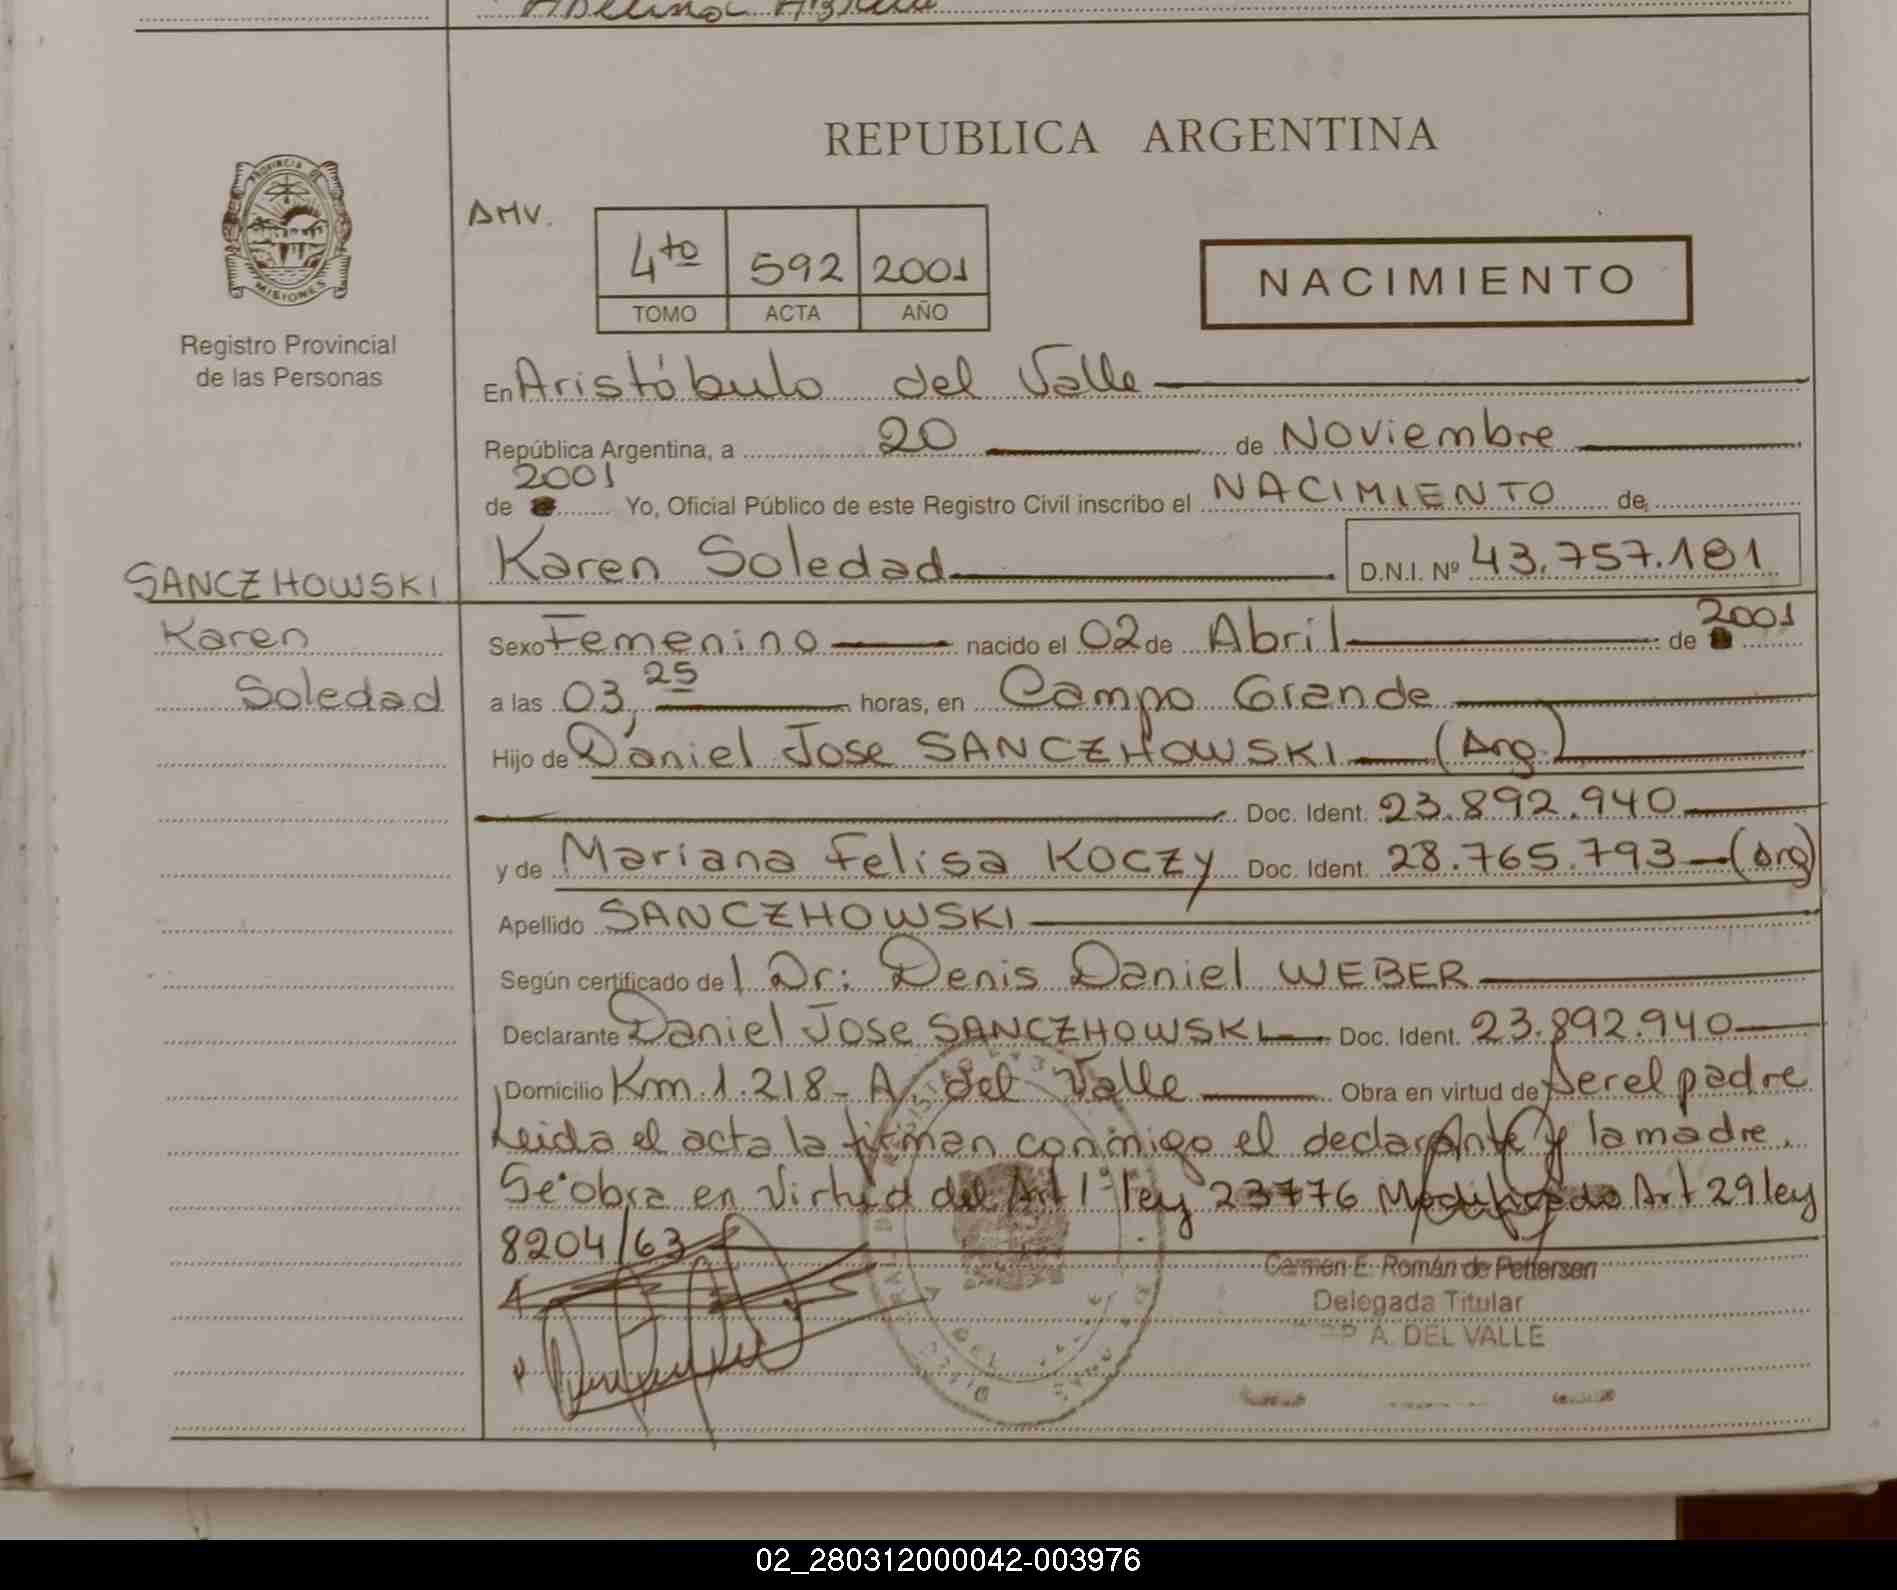 REPUBLICA ARGENTINA
PROVINCIA DE
MISIONES
Registro Provincial
de las Personas
AMV.
4to 592 2001
TOMO ACTA AÑO
NACIMIENTO
En Aristóbulo del Valle
República Argentina, a 20 de Noviembre
2001
de Yo, Oficial Público de este Registro Civil inscribo el NACIMIENTO de
SANCZHOWSKI
Karen Soledad D.N.I. Nº 43.757.181
Karen
Soledad
2001
Sexo Femenino nacido el 02 de Abril de
a las 03,25 horas, en Campo Grande
Hijo de Daniel Jose SANCZHOWSKI (Arg)
Doc. Ident. 23.892.940
y de Mariana Felisa KOCZY Doc. Ident. 28.765.793 (Arg)
Apellido SANCZHOWSKI
Según certificado de l Dr: Denis Daniel WEBER
Declarante Daniel Jose SANCZHOWSKI Doc. Ident. 23.892.940
Domicilio Km 1.218 - A. del Valle Obra en virtud de ser el padre
Leida el acta la firman conmigo el declarante y la madre.
Se obra en virtud del Art 1º ley 23776 Modificado Art 29 ley
8204/63
Carmen E. Román de Pettersen
Delegada Titular
A. DEL VALLE
02_280312000042-003976